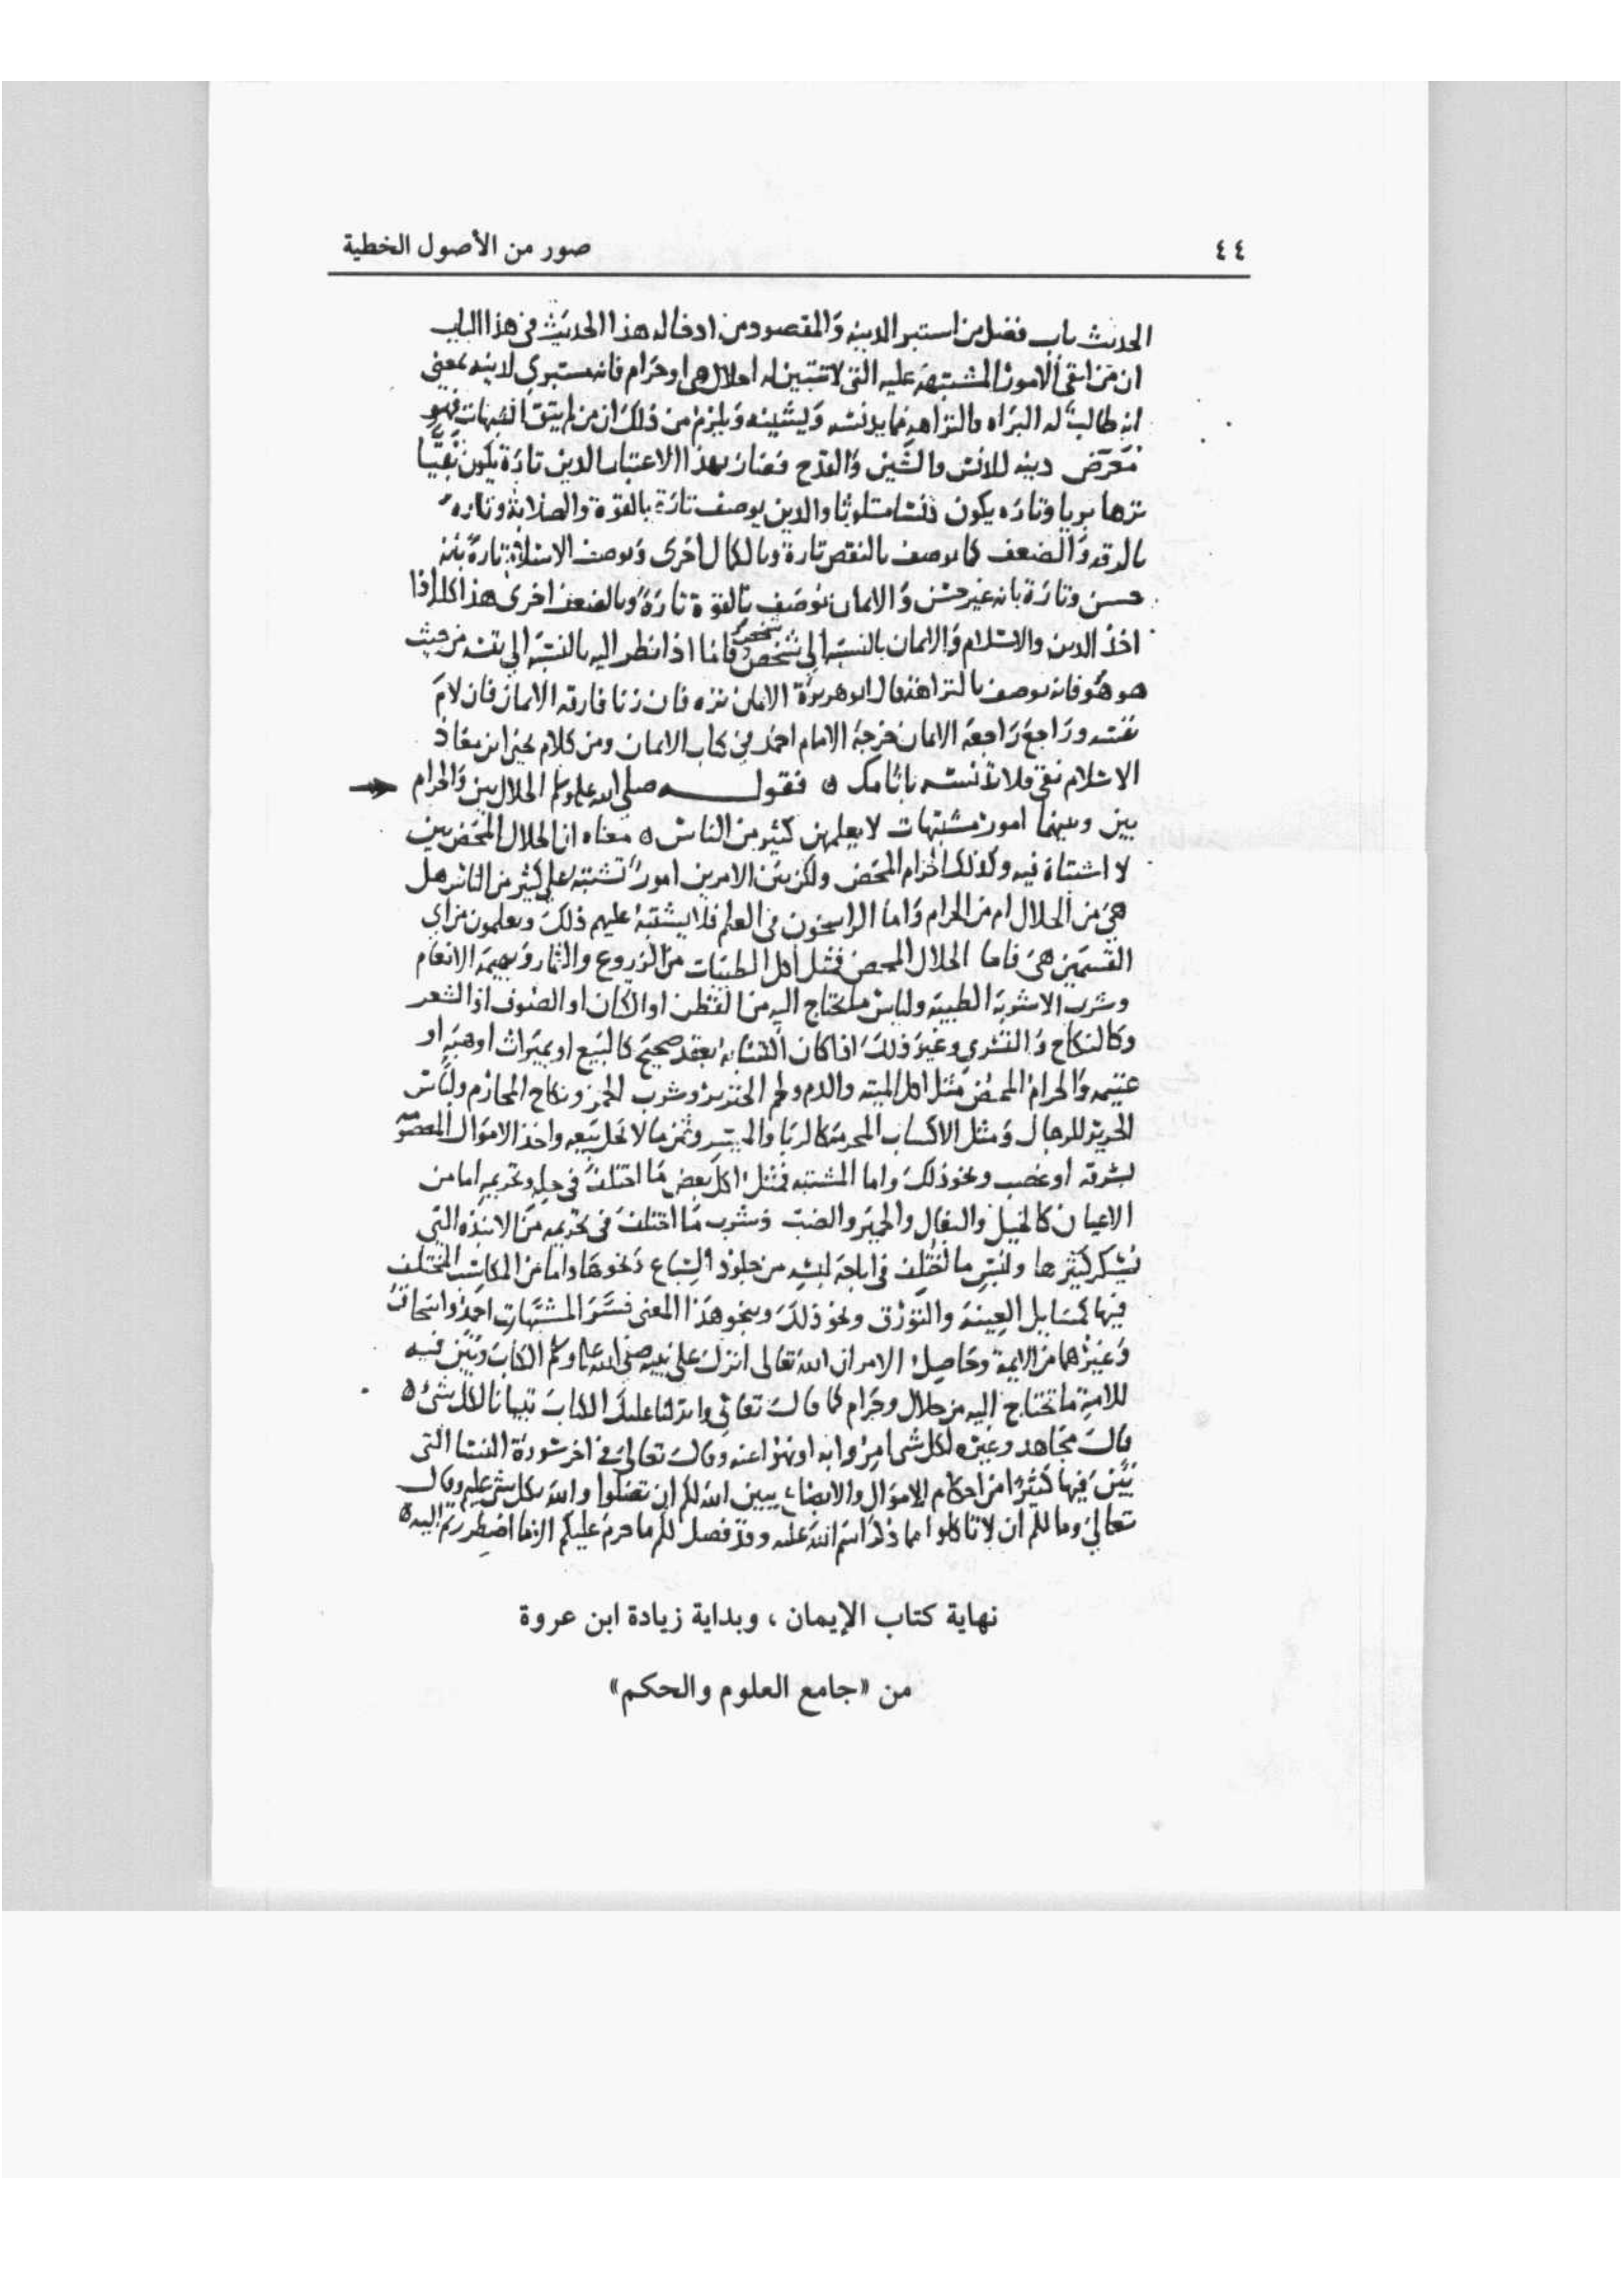 ٤٤ صور من الأصول الخطية
الحديث باب فضل من استبرا لدينه والمقصود من ادخاله هذا الحديث في هذا الباب
ان من اتقى الامور المشتبهة عليه التي لا تتبين له احلال هي او حرام فانه مستبري لدينه بمعنى
انه طالب له البراه والنزاهه مما يدنسه ويشينه ويلزم من ذلك ان من لم يتق الشبهات فهو
معرض دينه للدنس والشين والقدح فصار بهذا الاعتبار الدين تارة يكون نقيا
نزها بريا وتاره يكون دنسا متلوثا والدين يوصف تارة بالقوة والصلابة وتاره
بالرقه والضعف كما يوصف بالنقص تارة وبالكمال اخرى ويوصف الاسلام تارة بانه
حسن وتارة بانه غير حسن والايمان يوصف بالقوة تارة وبالضعف اخرى هذا كله اذا
اخذ الدين والاسلام والايمان بالنسبه الى شخص شخص فاما اذا نظر اليه بالنسبه الى نفسه من حيث
هو هو فانه يوصف بالنزاهة قال ابو هريرة الايمان نزه فان زنا فارقه الايمان فان لام
نفسه وراجع راجعه الايمان خرجه الامام احمد في كتاب الايمان ومن كلام يحيى ابن معاذ
الاسلام نقي فلا تدنسه باثامك ه فقوله صلى الله عليه وسلم الحلال بين والحرام
بين وبينهما امور مشتبهات لا يعلمهن كثير من الناس ه معناه ان الحلال المحض بين
لا اشتباه فيه وكذلك الحرام المحض ولكن بين الامرين امور تشتبه على كثير من الناس هل
هي من الحلال ام من الحرام واما الراسخون في العلم فلا يشتبه عليهم ذلك ويعلمون من اي
القسمين هي فاما الحلال المحض فمثل اكل الطيبات من الزروع والثمار وبهيمة الانعام
وشرب الاشربة الطيبه ولباس ما يحتاج اليه من القطن او الكتان او الصوف او الشعر
وكالنكاح والتسري وغير ذلك اذا كان اكتسابه بعقد صحيح كالبيع او بميراث او هبة او
غنيمه والحرام المحض مثل اكل الميته والدم ولحم الخنزير وشرب الخمر ونكاح المحارم ولباس
الحرير للرجال ومثل الاكساب المحرمة كالربا والميسر وثمن مالا يحل بيعه واخذ الاموال المغصوبه
بسرقه او غصب ونحو ذلك واما المشتبه فمثل اكل بعض ما اختلف في حله وتحريمه اما من
الاعيان كالخيل والبغال والحمير والضب وشرب ما اختلف في تحريمه من الانبذه التي
يسكر كثيرها ولبس ما اختلف في اباحة لبسه من جلود السباع ونحوها واما من المكاسب المختلف
فيها كمسايل العينة والتورق ونحو ذلك وبنحو هذا المعنى فسر المشتبهات احمد واسحاق
وغيرهما من الايمة وحاصل الامر ان الله تعالى انزل على نبيه صلى الله عليه وسلم الكتاب وبين فيه
للامة ما تحتاج اليه من حلال وحرام كما قال تعالى وانزلنا عليك الكتاب تبيانا لكل شيء ه
قال مجاهد وغيره لكل شي امروا به او نهوا عنه وقال تعالى في اخر سورة النسا التي
بين فيها كثيرا من احكام الاموال والابضاع يبين الله لكم ان تضلوا والله بكل شي عليم وقال
تعالى وما لكم ان لا تاكلوا مما ذكر اسم الله عليه وقد فصل لكم ما حرم عليكم الا ما اضطررتم اليه ه
نهاية كتاب الإيمان ، وبداية زيادة ابن عروة
من «جامع العلوم والحكم»